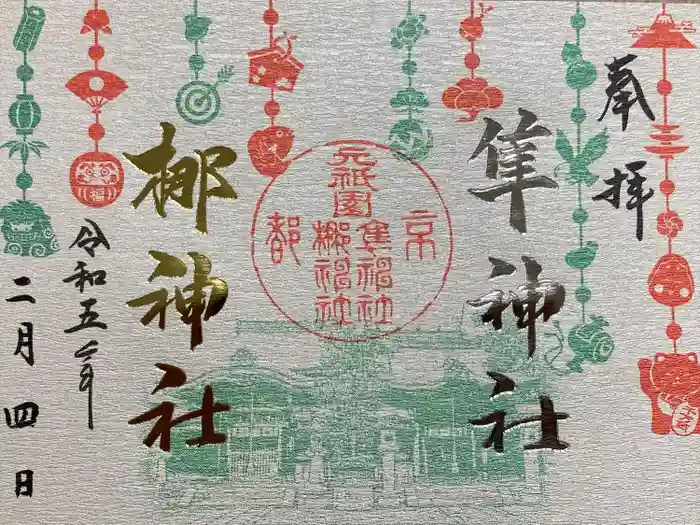 奉拝
隼神社
京都
元祇園
隼神社
梛神社
梛神社
令和五年
二月四日
福